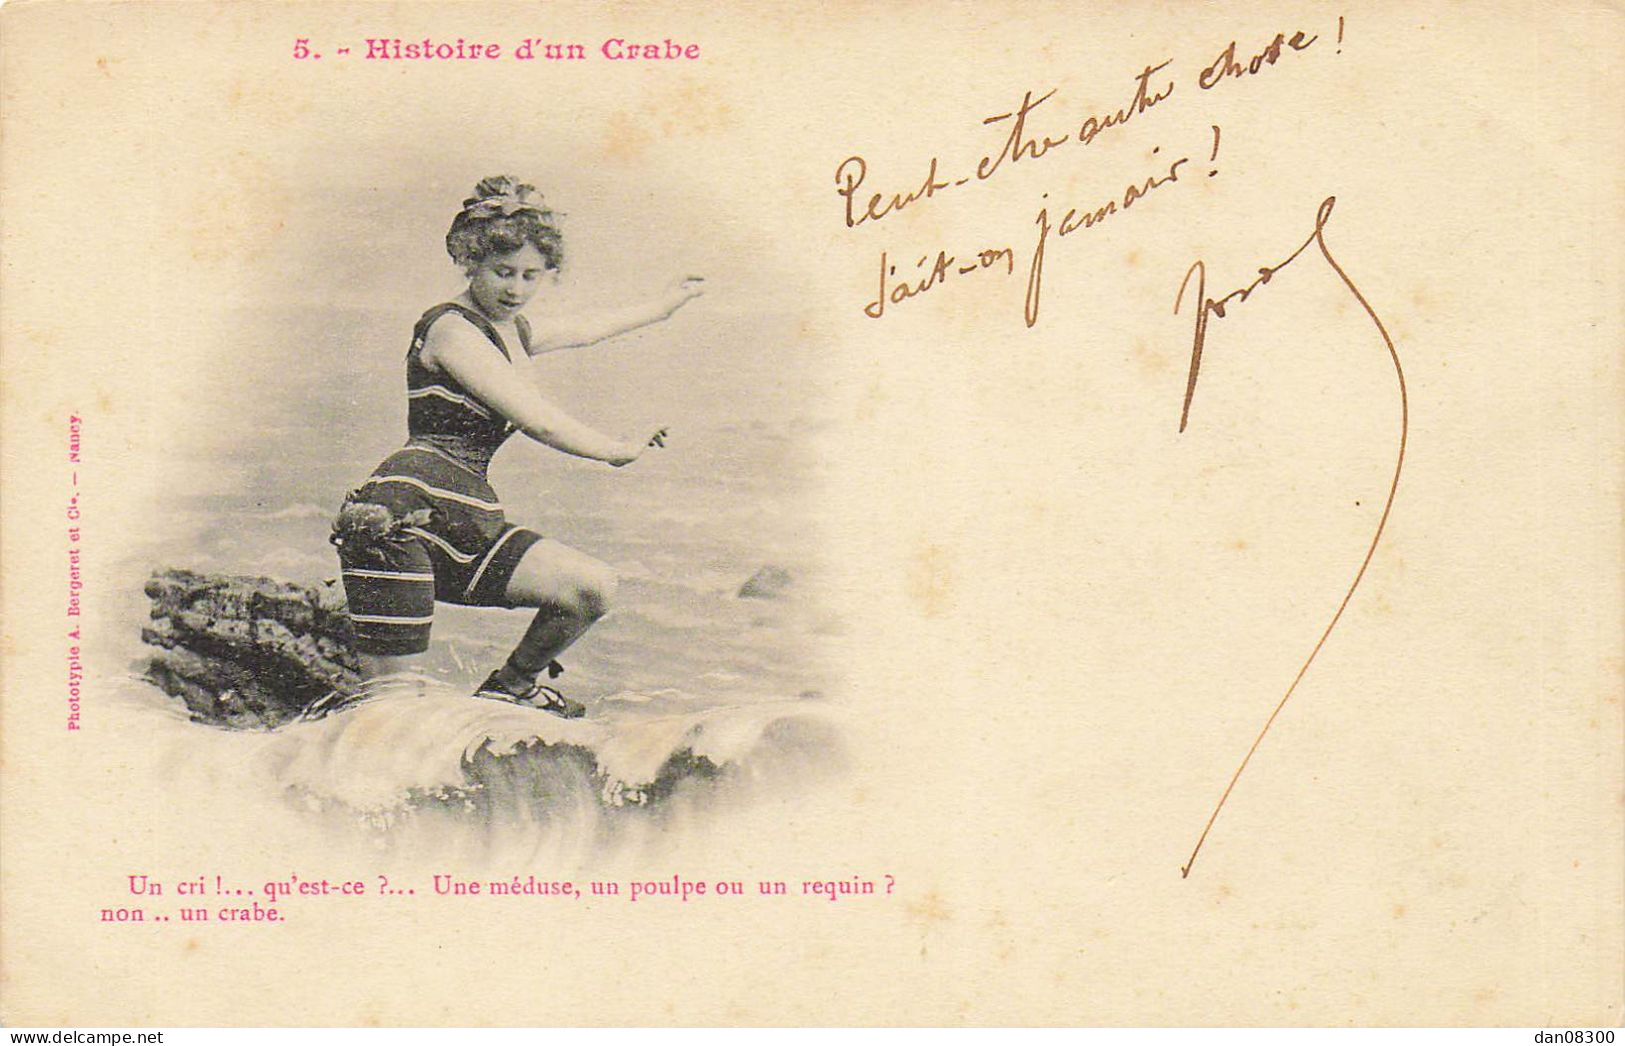 5. - Histoire d'un Crabe
Peut-être autre chose !
sait-on jamais !
Phototypie A. Bergeret et Cie. — Nancy.
Un cri !... qu'est-ce ?... Une méduse, un poulpe ou un requin ?
non .. un crabe.
dan08300